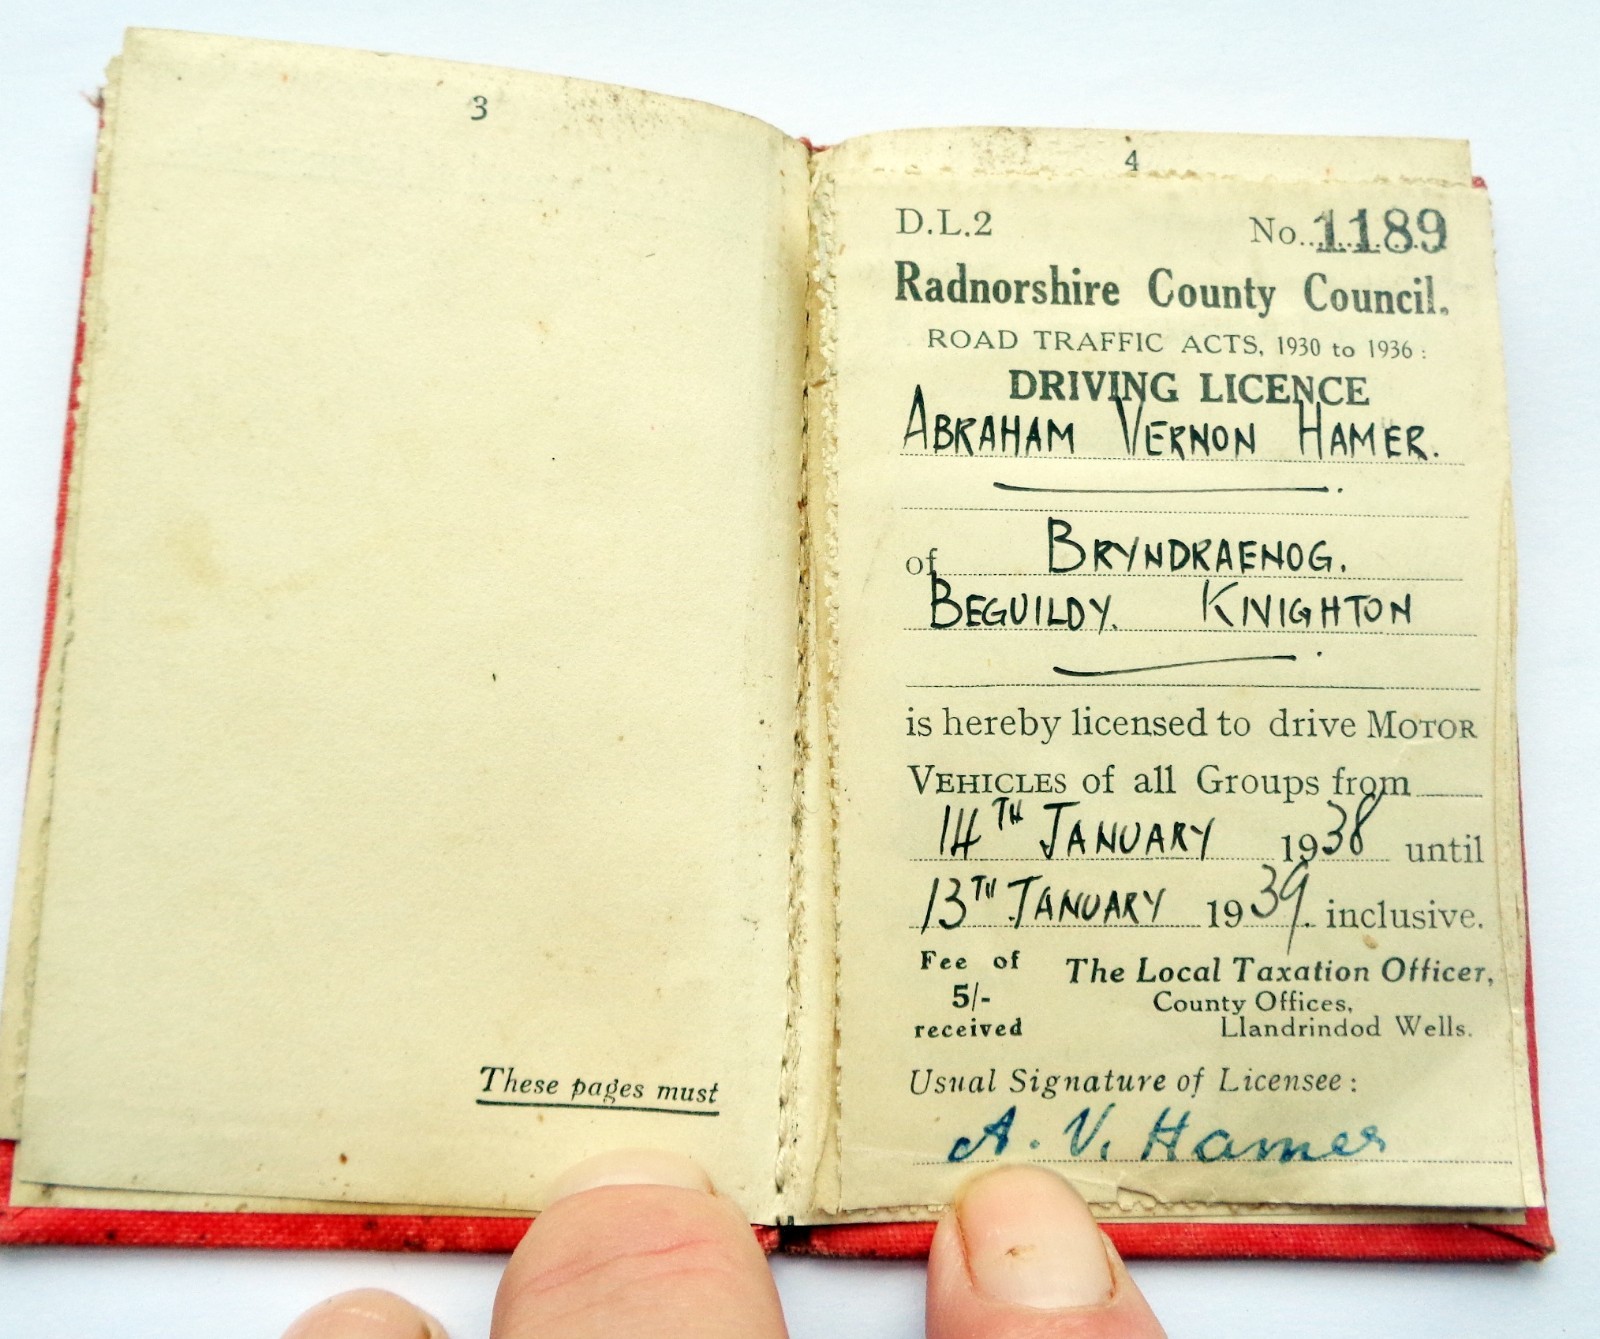 3
These pages must
4
D.L.2 No. 1189
Radnorshire County Council.
ROAD TRAFFIC ACTS, 1930 to 1936:
DRIVING LICENCE
ABRAHAM VERNON HAMER.
of BRYNDRAENOG.
BEGUILDY. KNIGHTON
is hereby licensed to drive MOTOR
VEHICLES of all Groups from
14TH JANUARY 1938 until
13TH JANUARY 1939. inclusive.
Fee of
5/-
received
The Local Taxation Officer,
County Offices,
Llandrindod Wells.
Usual Signature of Licensee:
A. V. Hamer